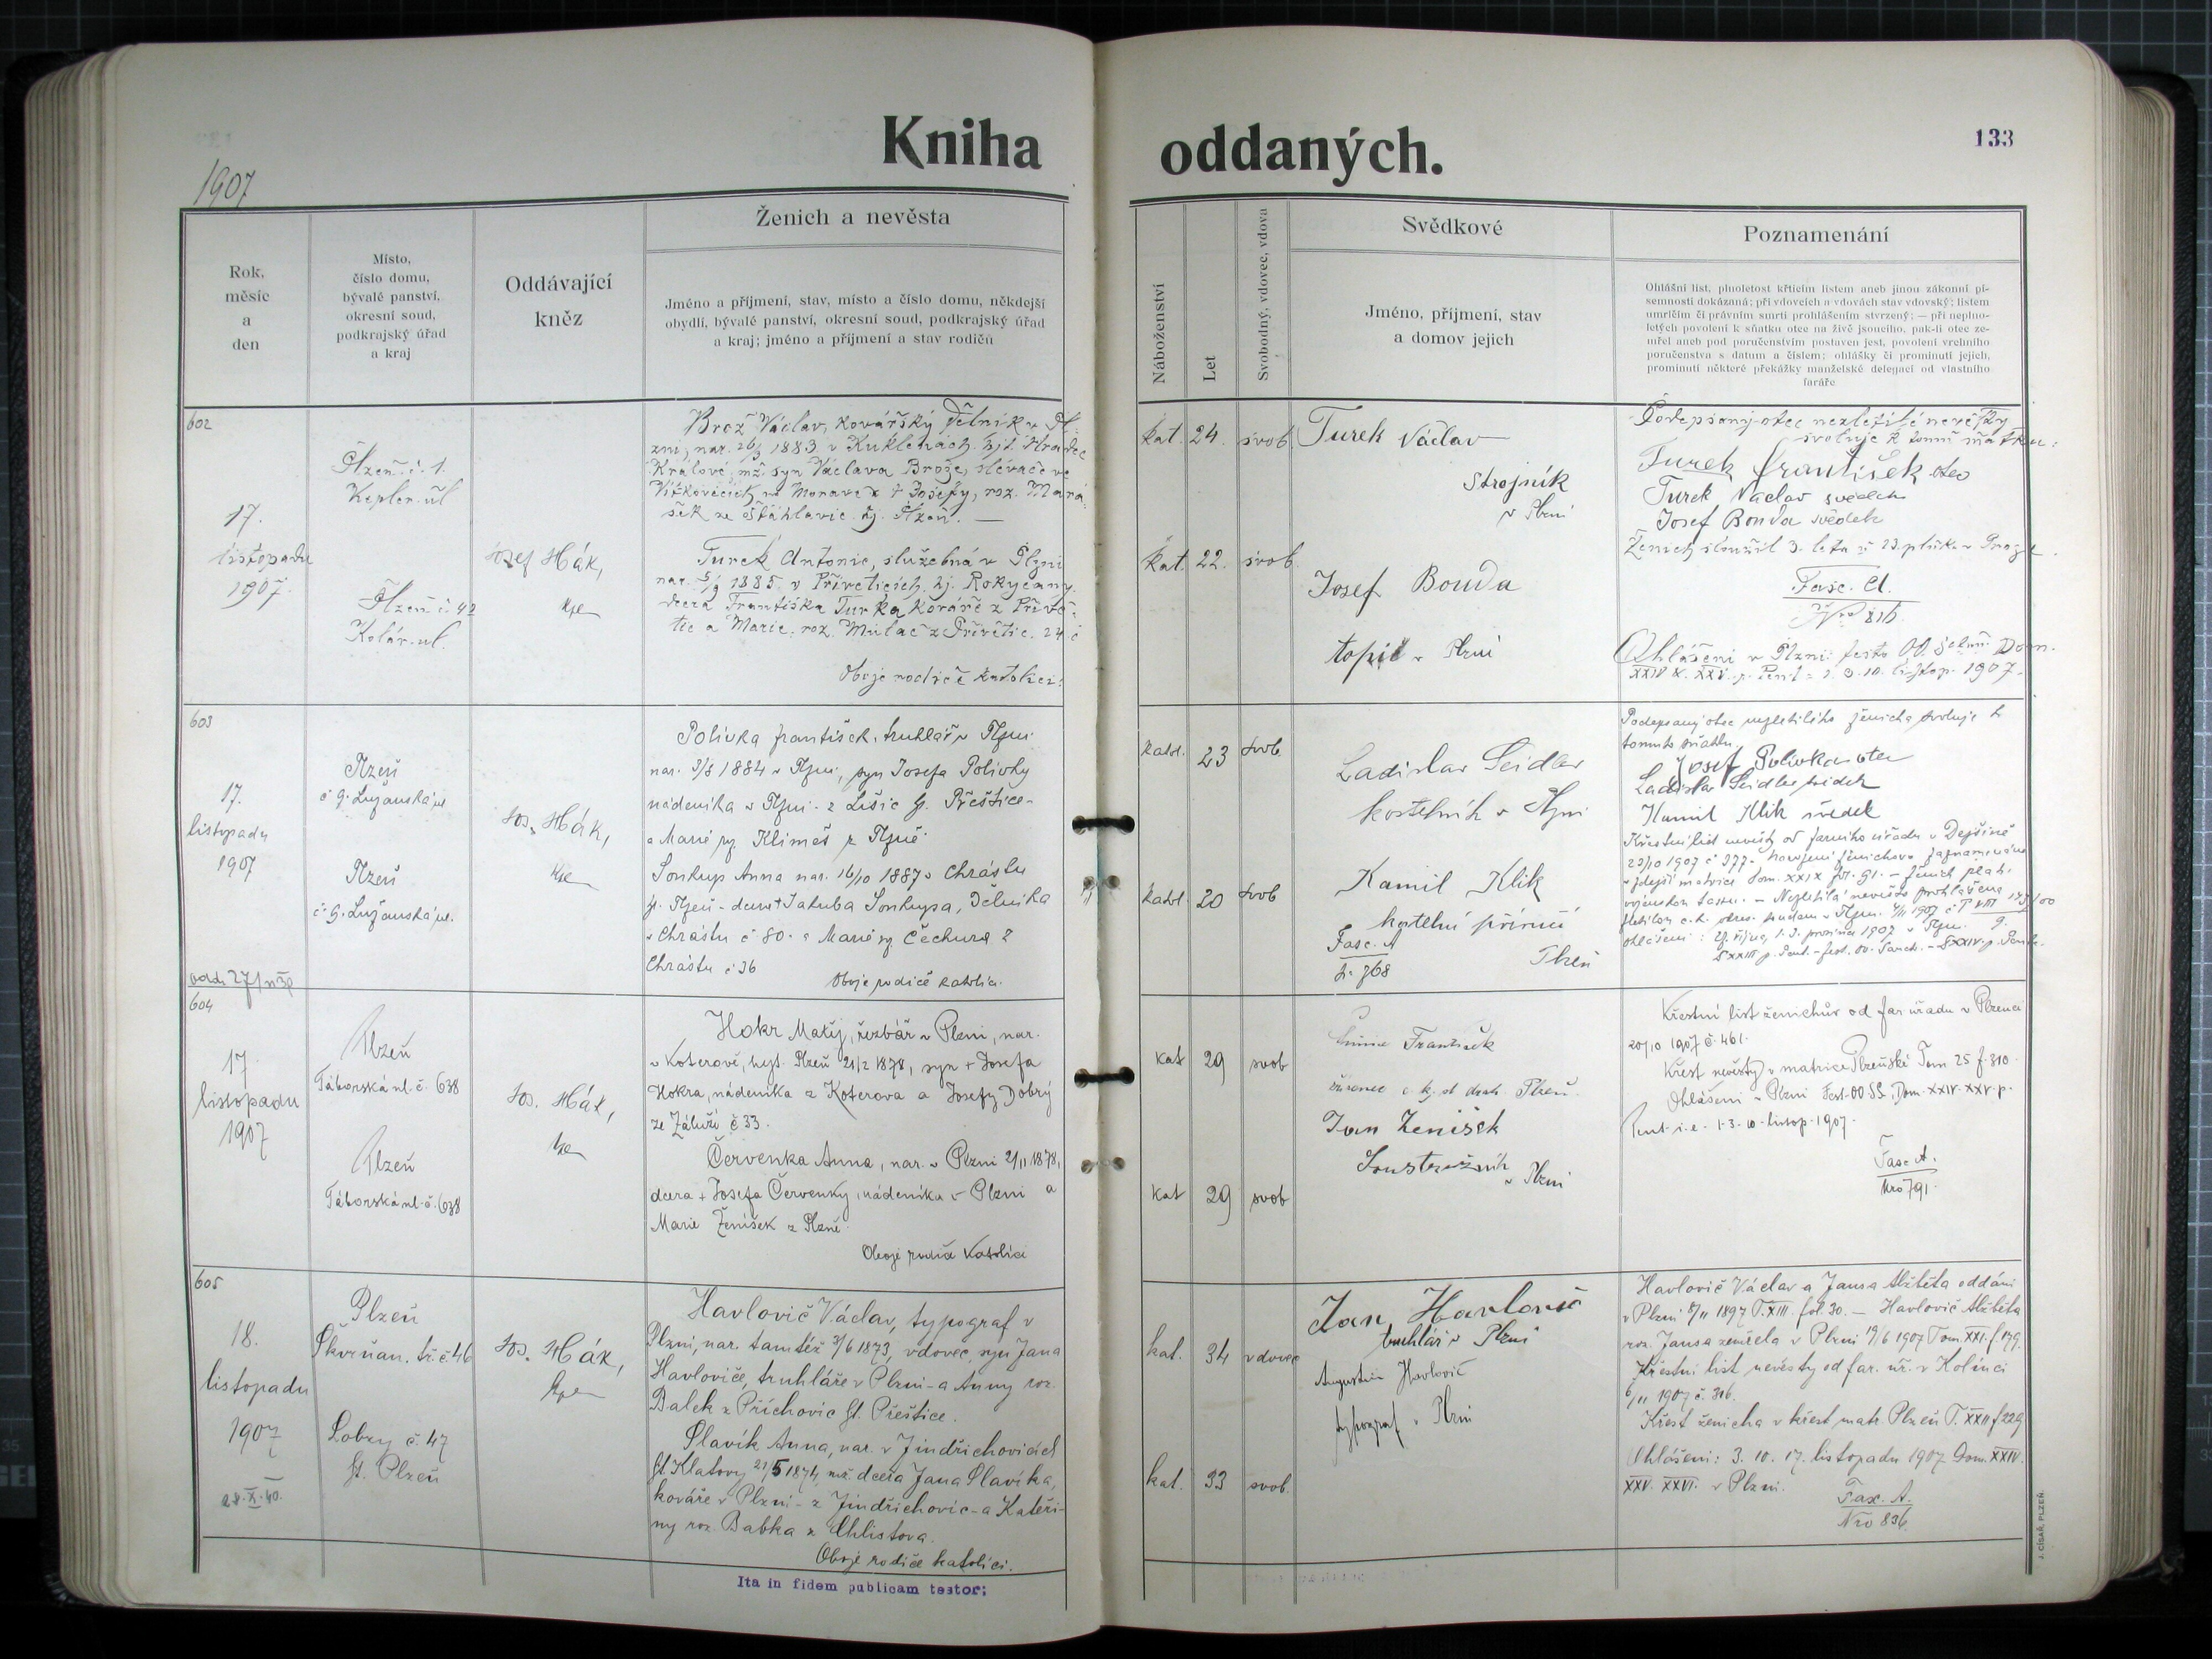 Kniha oddaných.
133
1907
Rok, měsíc a den
Místo, číslo domu, bývalé panství, okresní soud, podkrajský úřad a kraj
Oddávající kněz
Ženich a nevěsta
Jméno a příjmení, stav, místo a číslo domu, někdejší
obydlí, bývalé panství, okresní soud, podkrajský úřad
a kraj; jméno a příjmení a stav rodičů
Náboženství
Let
Svobodný, vdovec, vdova
Svědkové
Jméno, příjmení, stav
a domov jejich
Poznamenání
Ohlášní list, plnoletost křticím listem aneb jinou zákonní pí-
semností dokázaná; při vdovcích a vdovách stav vdovský; listem
umrlčím či právním smrti prohlášením stvrzený; — při neplno-
letých povolení k sňatku otce na živě jsoucího, pak-li otec ze-
mřel aneb pod poručenstvím postaven jest, povolení vrchního
poručenstva s datum a číslem; ohlášky či prominutí jejich,
prominutí některé překážky manželské delegací od vlastního
faráře
602
17.
listopadu
1907.
Plzeň č. 1.
Kepler. ul
Plzeň č. 42
Kolár. ul.
Josef Hák,
kpe
Brož Václav, kovářský dělník v Pl-
zni, nar. 26/9 1883 v Kuklenách hjt. Hradec
Králové, mž. syn Václava Brože, slévače ve
Vítkovicích na Moravě a † Josefy, roz. Mará-
šek ze Šťáhlavic hj. Plzeň. —
Turek Antonie, služebná v Plzni
nar. 5/9 1885 v Přívěticích, hj. Rokycany.
dcera Františka Turka kováře z Přívě-
tic a Marie, roz. Mulač z Přívětic. 24 č
Oboje rodiče katolíci.
kat. 24. svob.
kat. 22. svob.
Turek Václav
Strojník
v Plzni
Josef Bouda
topič v Plzni
Podepsaný otec nezletilé nevěsty
svoluje k tomu sňatku:
Turek František otec
Turek Václav svědek
Josef Bouda svědek
Ženich sloužil 3. leta u 23. pluku v Praze.
Fasc. A.
Nro 816
Ohlášení v Plzni: festo OO. Dom.
XXIV. et XXV. p. Pent = 1. 3. 10. listop. 1907.
603
17.
listopadu
1907
Plzeň
č 9. Lužanská ul
Plzeň
č. 9. Lužanská ul.
Jos. Hák,
kpe
Polívka František, truhlář v Plzni
nar. 3/8 1884 v Plzni, syn Josefa Polívky
nádeníka v Plzni - z Lišic hj. Přeštice -
a Marie roz. Klimeš z Plzně.
Soukup Anna nar. 16/10 1887 v Chrástu
hj. Plzeň - dcera Jakuba Soukupa, dělníka
v Chrástu č 80. a Marie roz Čechura z
Chrástu č 36
Oboje rodiče katolíci.
katol. 23 svob.
katol. 20 svob
Ladislav Seidler
kostelník v Plzni
Kamil Klik
kostelní příručí
Plzeň
Fasc. A
768
Podepsaný otec nezletilého ženicha svoluje k
tomuto sňatku.
Josef Polívka otec
Ladislav Seidler svědek
Kamil Klik svědek
Křestní list nevěsty od farního úřadu v Dejšině
604
17
listopadu
1907
Plzeň
Táborská ul. č. 638
Plzeň
Táborská ul. č. 638
Jos. Hák,
kpe
Hokr Matěj, řezbář v Plzni, nar.
v Koterově, hejt. Plzeň 21/2 1878, syn + Josefa
Hokra, nádeníka z Koterova a Josefy Dobrý
ze Záluží č 33.
Červenka Anna, nar. v Plzni 2/11 1878,
dcera + Josefa Červenky, nádeníka v Plzni a
Marie Ženíšek z Plzně.
Oboje rodiče katolíci
kat 29 svob
kat 29 svob
František
zřízenec c. k. st. drah Plzeň.
Jan Ženíšek
Soustružník
v Plzni
Křestní list ženichův od far. úřadu v Plzenci
20/10 1907 č. 461.
Křest nevěsty v matrice Plzeňské Tom 25 f. 310.
Ohlášení v Plzni Fest. OO. SS. Dom. XXIV. XXV. p.
Pent. i. e. 1. 3. 10. listop. 1907.
Fasc A.
Nro 791.
605
18.
listopadu
1907
28. X. 40.
Plzeň
Škvrňan. tř. č. 46
Lobzy č. 47
hj. Plzeň
Jos. Hák,
kpe
Havlovič Václav, typograf v
Plzni, nar. tamtéž 3/6 1873, vdovec, syn Jana
Havloviče, truhláře v Plzni - a Anny roz.
Balek z Příchovic hj. Přeštice.
Slavík Anna, nar. v Jindřichovicích
hj. Klatovy 21/5 1874, mž. dcera Jana Slavíka,
kováře v Plzni - z Jindřichovic - a Kateři-
ny roz. Babka z Chlistova.
Oboje rodiče katolíci.
kat. 34 vdovec
kat. 33 svob.
Jan Havlovič
truhlář v Plzni
Augustin Havlovič
typograf v Plzni
Havlovič Václav a Jansa Alžběta oddáni
v Plzni 8/11 1897 T. XIII. fol. 30. — Havlovič Alžběta
roz. Jansa zemřela v Plzni 19/6 1907 Tom. XXI. f. 179.
Křestní list nevěsty od far. úř. v Kolinci
6/11 1907 č. 316.
Křest ženicha v křest. matr. Plzeň T. XXII f 229
Ohlášení: 3. 10. 17. listopadu 1907 Dom. XXIV.
XXV. XXVI. v Plzni.
Fasc. A.
Nro 836.
Ita in fidem publicam testor;
J. CÍSAŘ, PLZEŇ.